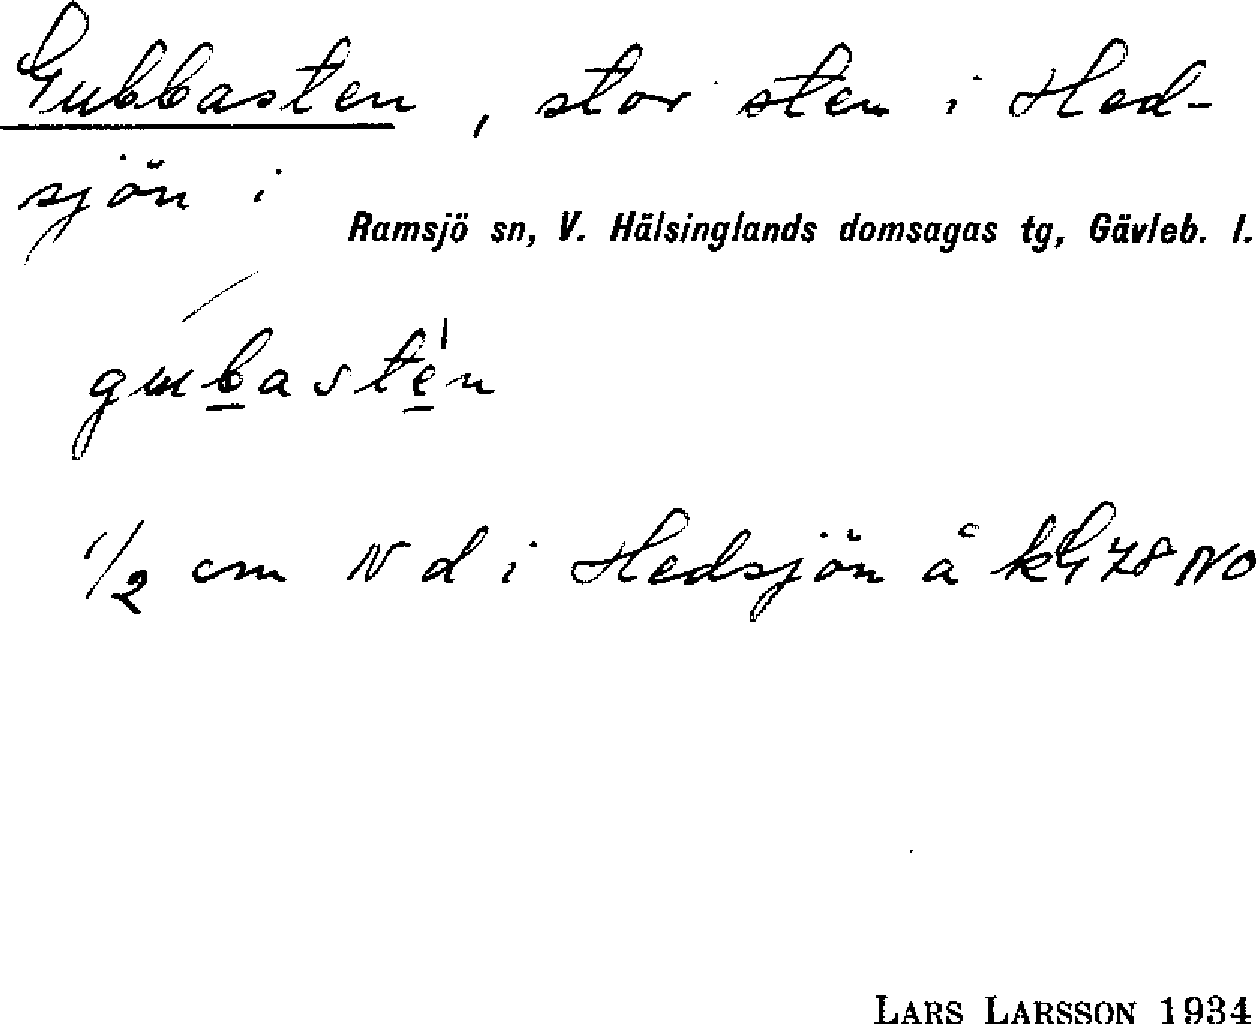 Gubbasten, stor sten i Hed-
sjön i
Ramsjö sn, V. Hälsinglands domsagas tg, Gävleb. l.
gɯbastén
1/2 cm N d i Hedsjön å kG 78 NO
LARS LARSSON 1934